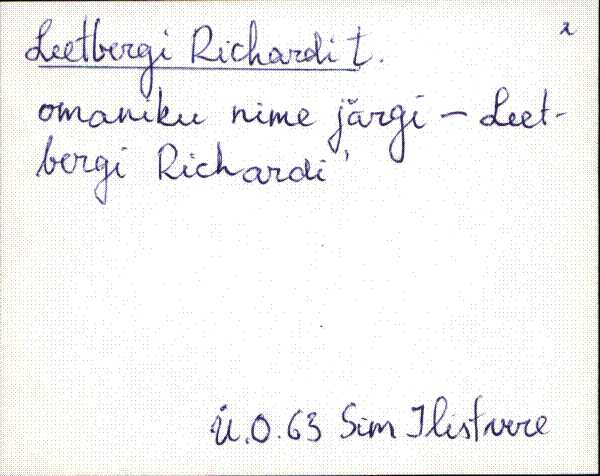 2
Leetbergi Richardi t.
omaniku nime järgi – Leet-
bergi Richardi'
Ü.O. 63 Sim Ilistvere